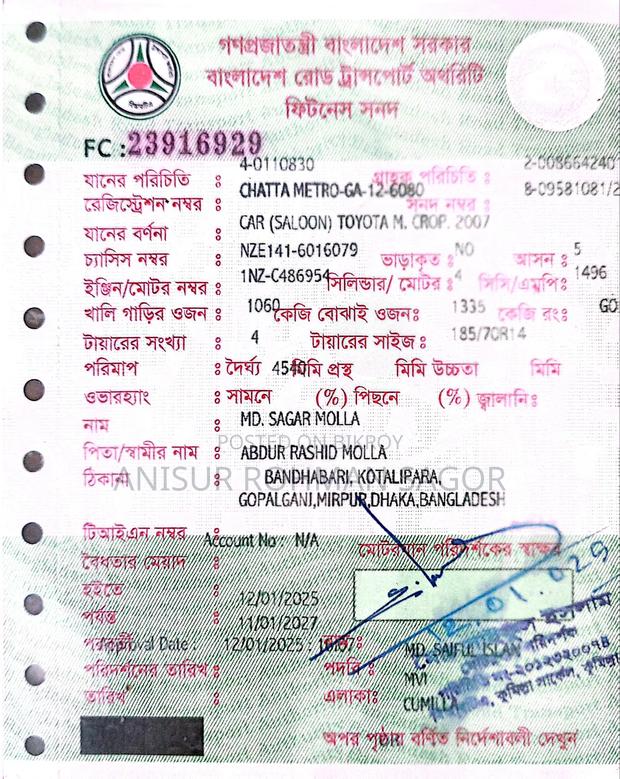 গণপ্রজাতন্ত্রী বাংলাদেশ সরকার
বাংলাদেশ রোড ট্রান্সপোর্ট অথরিটি
ফিটনেস সনদ
FC : 23916929
4-0110830 2-008664240
যানের পরিচিতি : গ্রাহক পরিচিতি :
CHATTA METRO-GA-12-6080 8-09581081/2
রেজিস্ট্রেশন নম্বর : সনদ নম্বর :
যানের বর্ণনা : CAR (SALOON) TOYOTA M. CROP. 2007
চ্যাসিস নম্বর : NZE141-6016079 ভাড়াকৃত : NO আসন : 5
ইঞ্জিন/মোটর নম্বর : 1NZ-C486954 সিলিন্ডার/ মোটর : 4 সিসি/এমপি: 1496
খালি গাড়ির ওজন : 1060 কেজি বোঝাই ওজন: 1335 কেজি রং: GO
টায়ারের সংখ্যা : 4 টায়ারের সাইজ : 185/70R14
পরিমাপ : দৈর্ঘ্য 4540 মিমি প্রস্থ মিমি উচ্চতা মিমি
ওভারহ্যাং : সামনে (%) পিছনে (%) জ্বালানি:
নাম : MD. SAGAR MOLLA
POSTED ON BIKROY
পিতা/স্বামীর নাম : ABDUR RASHID MOLLA
ANISUR ROHMAN SAGOR
ঠিকানা : BANDHABARI, KOTALIPARA,
GOPALGANJ,MIRPUR,DHAKA,BANGLADESH
টিআইএন নম্বর : Account No : N/A
মোটরযান পরিদর্শকের স্বাক্ষর
বৈধতার মেয়াদ :
হইতে : 12/01/2025
পর্যন্ত : 11/01/2027
Approval Date : 12/01/2025 :
MD. SAIFUL ISLAN
পরিদর্শনের তারিখ : পদবি : MVI
তারিখ : এলাকা: CUMILLA
অপর পৃষ্ঠায় বর্ণিত নির্দেশাবলী দেখুন